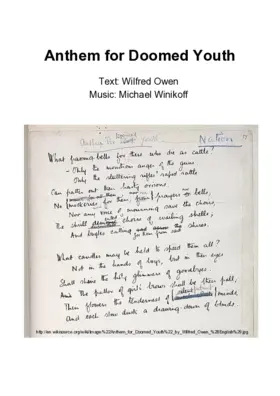 Anthem for Doomed Youth
Text: Wilfred Owen
Music: Michael Winikoff
Anthem for Doomed Youth
What passing bells for these who die as cattle?
- Only the monstrous anger of the guns
Only the stuttering rifles' rapid rattle
Can patter out their hasty orisons.
No mockeries for them; prayers bells,
Nor any voice of mourning save the choirs,—
The shrill demented choirs of wailing shells;
And bugles calling for them from sad shires.
What candles may be held to speed them all?
Not in the hands of boys, but in their eyes
Shall shine the holy glimmers of goodbyes.
And The pallor of girls' brows shall be their pall;
Their flowers the tenderness of minds,
And each slow dusk a drawing-down of blinds.